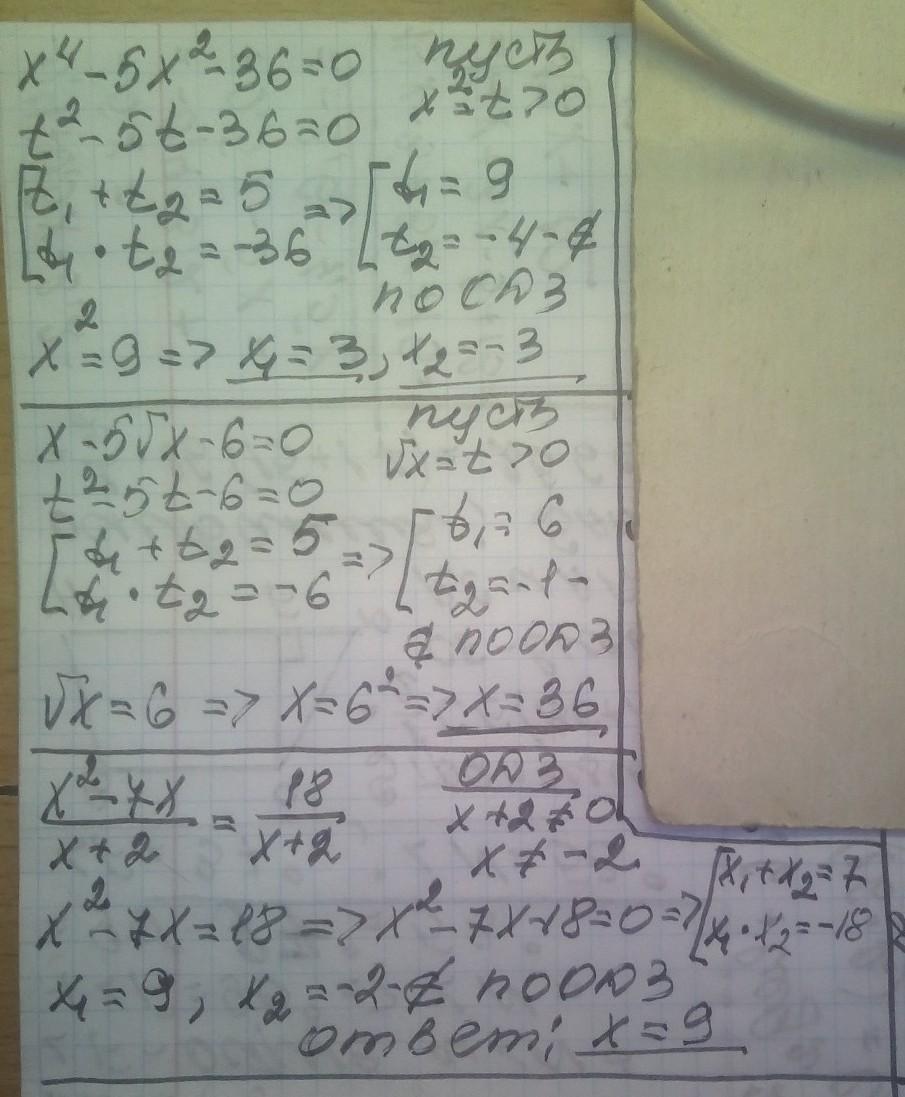 x⁴-5x²-36=0 пусть
x²=t>0
t²-5t-36=0
[t₁+t₂=5 => [t₁=9
t₁·t₂=-36 t₂=-4-∉
по ОДЗ
x²=9 => x₁=3, x₂=-3
x-5√x-6=0 пусть
√x=t>0
t²-5t-6=0
[t₁+t₂=5 => [t₁=6
t₁·t₂=-6 t₂=-1-
∉ по ОДЗ
√x=6 => x=6² => x=36
x²-7x/x+2 = 18/x+2 ОДЗ
x+2≠0
x≠-2
x²-7x=18 => x²-7x-18=0 => [x₁+x₂=7
x₁·x₂=-18
x₁=9, x₂=-2-∉ по ОДЗ
ответ: x=9